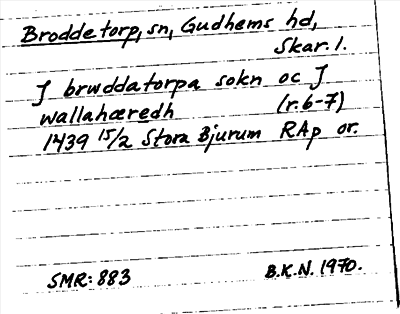 Broddetorp, sn, Gudhems hd,
Skar. l.
J brwddatorpa sokn oc J
wallahæredh (r. 6-7)
1439 15/2 Stora Bjurum RAp or.
SMR: 883 B.K.N. 1970.